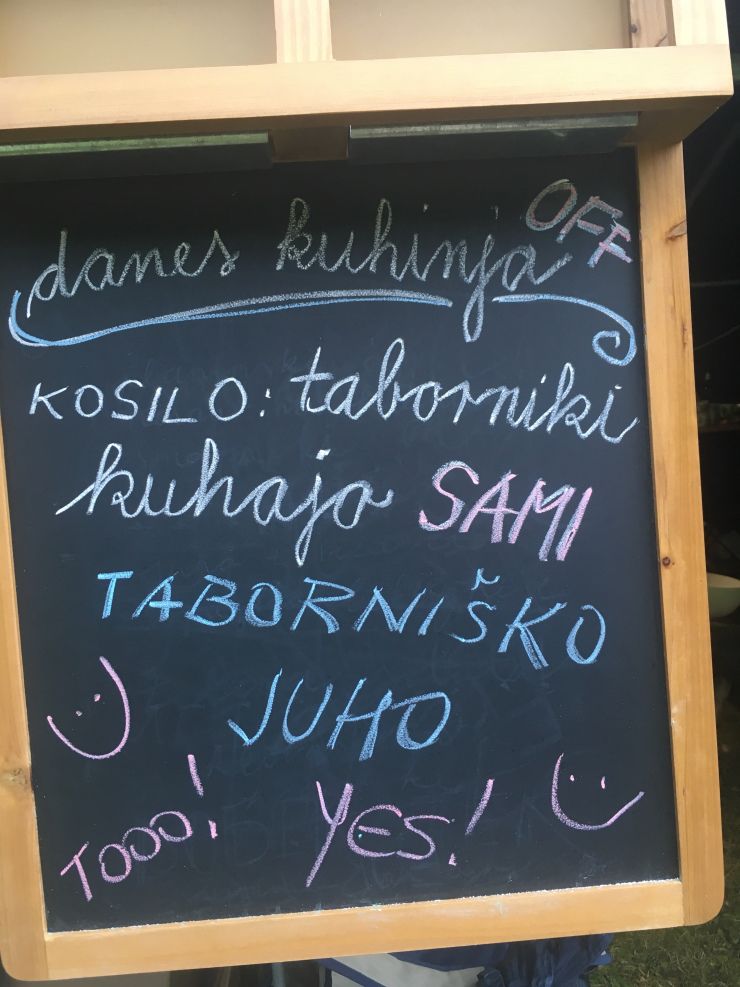 danes kuhinja OFF
KOSILO: taborniki
kuhajo SAMI
TABORNIŠKO
JUHO
TOOO! YES!